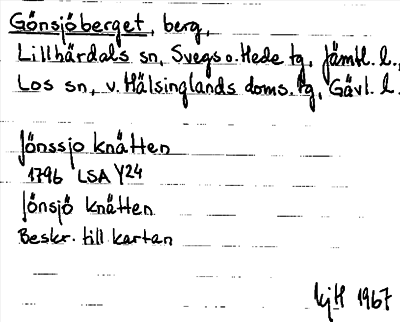 Gönsjöberget, berg,
Lillhärdals sn, Svegs o. Hede tg, Jämtl. l.,
Los sn, v. Hälsinglands doms. tg, Gävl. l.
Jönssjo knätten
1796 LSA Y24
Jönsjö knätten
Beskr. till kartan
1967